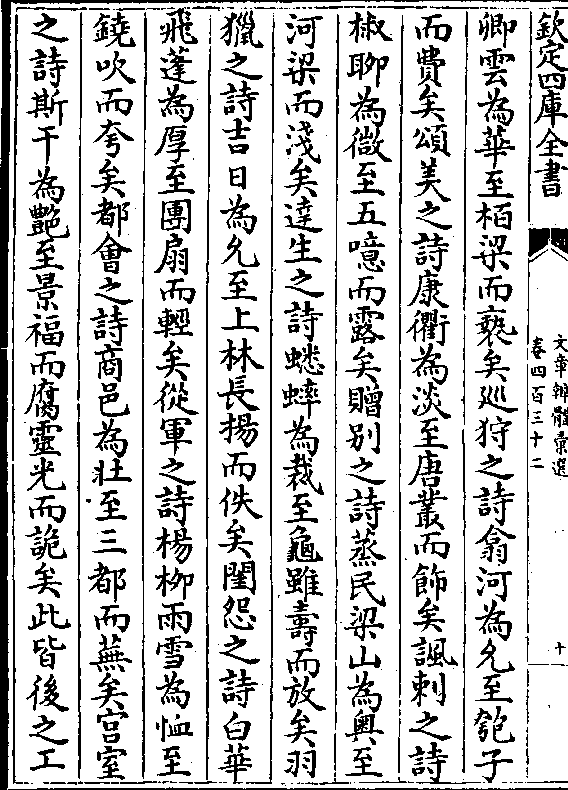 欽定四庫全書
文章辨體彙選
卷四百三十二
十
卿雲為華至栢梁而褻矣廵狩之詩翕河為允至瓠子
而費矣頌美之詩康衢為淡至唐叢而飾矣諷刺之詩
椒聊為微至五噫而露矣贈别之詩蒸民梁山為輿至
河梁而淺矣達生之詩蟋蟀為裁至龜雖壽而放矣羽
獵之詩吉日為允至上林長楊而佚矣閨怨之詩白華
飛蓬為厚至團扇而輕矣從軍之詩楊柳雨雪為恤至
鐃吹而夸矣都會之詩商邑為壯至三都而蕪矣宫室
之詩斯干為艷至景福而腐靈光而詭矣此皆後之工